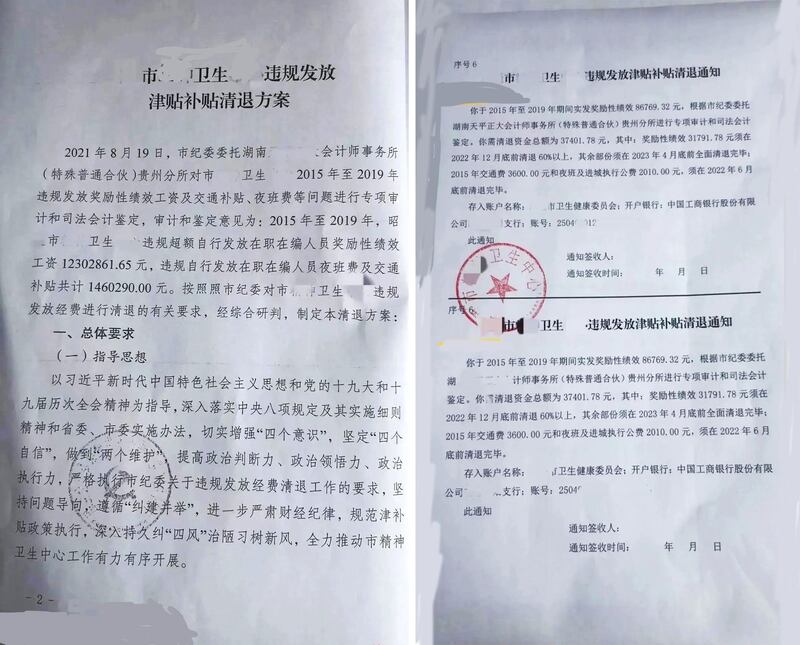 市 卫生 违规发放
津贴补贴清退方案
2021年8月19日，市纪委委托湖南 会计师事务所
（特殊普通合伙）贵州分所对市 卫生 2015年至2019年
违规发放奖励性绩效工资及交通补贴、夜班费等问题进行专项审
计和司法会计鉴定，审计和鉴定意见为：2015年至2019年，昭
市 卫生 违规超额自行发放在职在编人员奖励性绩效
工资12302861.65元，违规自行发放在职在编人员夜班费及交通
补贴共计1460290.00元。按照照市纪委对市 卫生 违规
发放经费进行清退的有关要求，经综合研判，制定本清退方案：
一、总体要求
（一）指导思想
以习近平新时代中国特色社会主义思想和党的十九大和十
九届历次全会精神为指导，深入落实中央八项规定及其实施细则
精神和省委、市委实施办法，切实增强“四个意识”，坚定“四个
自信”，做到“两个维护”，提高政治判断力、政治领悟力、政治
执行力，严格执行市纪委关于违规发放经费清退工作的要求，坚
持问题导向，遵循“纠建并举”，进一步严肃财经纪律，规范津补
贴政策执行，深入持久纠“四风”治陋习树新风，全力推动市精神
卫生中心工作有力有序开展。
- 2 -
序号 6
市 卫生 违规发放津贴补贴清退通知
你于2015年至2019年期间实发奖励性绩效86769.32元，根据市纪委委托
湖南天平正大会计师事务所（特殊普通合伙）贵州分所进行专项审计和司法会计
鉴定。你需清退资金总额为37401.78元，其中：奖励性绩效31791.78元须在
2022年12月底前清退60%以上，其余部份须在2023年4月底前全面清退完毕；
2015年交通费3600.00元和夜班及进城执行公费2010.00元，须在2022年6月
底前清退完毕。
存入账户名称： 市卫生健康委员会；开户银行：中国工商银行股份有限
公司 支行；账号：25046 012
此通知
通知签收人：
通知签收时间： 年 月 日
市 卫生中心
序号 6
市 卫生 违规发放津贴补贴清退通知
你于2015年至2019年期间实发奖励性绩效86769.32元，根据市纪委委托
湖 会计师事务所（特殊普通合伙）贵州分所进行专项审计和司法会计
鉴定。你 清退资金总额为37401.78元，其中：奖励性绩效31791.78元须在
2022年12月底前清退60%以上，其余部份须在2023年4月底前全面清退完毕；
2015年交通费3600.00元和夜班及进城执行公费2010.00元，须在2022年6月
底前清退完毕。
存入账户名称： 市卫生健康委员会；开户银行：中国工商银行股份有限
公司 支行；账号：2504
此通知
通知签收人：
通知签收时间： 年 月 日